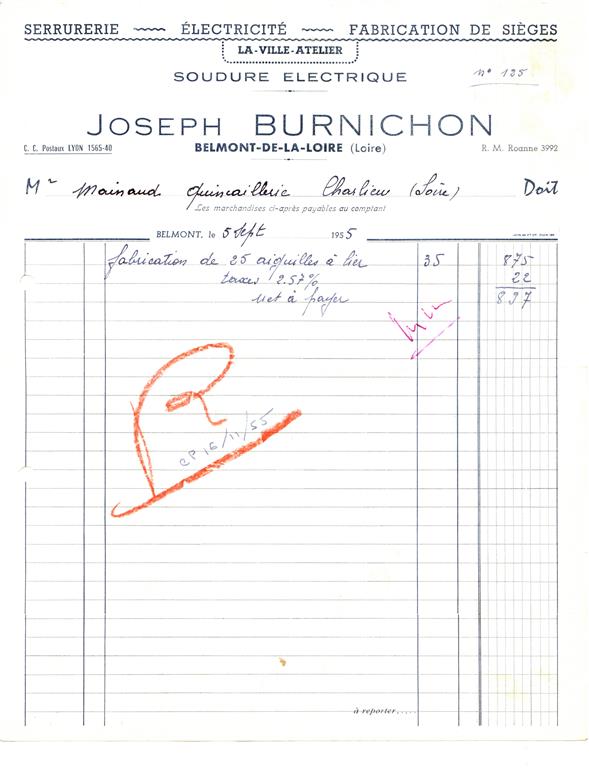 SERRURERIE — ÉLECTRICITÉ — FABRICATION DE SIÈGES
LA-VILLE-ATELIER
SOUDURE ELECTRIQUE
n° 125
JOSEPH BURNICHON
C. C. Postaux LYON 1565-40
BELMONT-DE-LA-LOIRE (Loire)
R. M. Roanne 3992
Mr Mainaud Quincaillerie Charlieu (Loire) Doit
Les marchandises ci-après payables au comptant
BELMONT, le 5 Sept 1955
fabrication de 25 aiguilles à lier 35 875
taxes 2.57% 22
net à payer 897
CP 16/11/55
à reporter.....